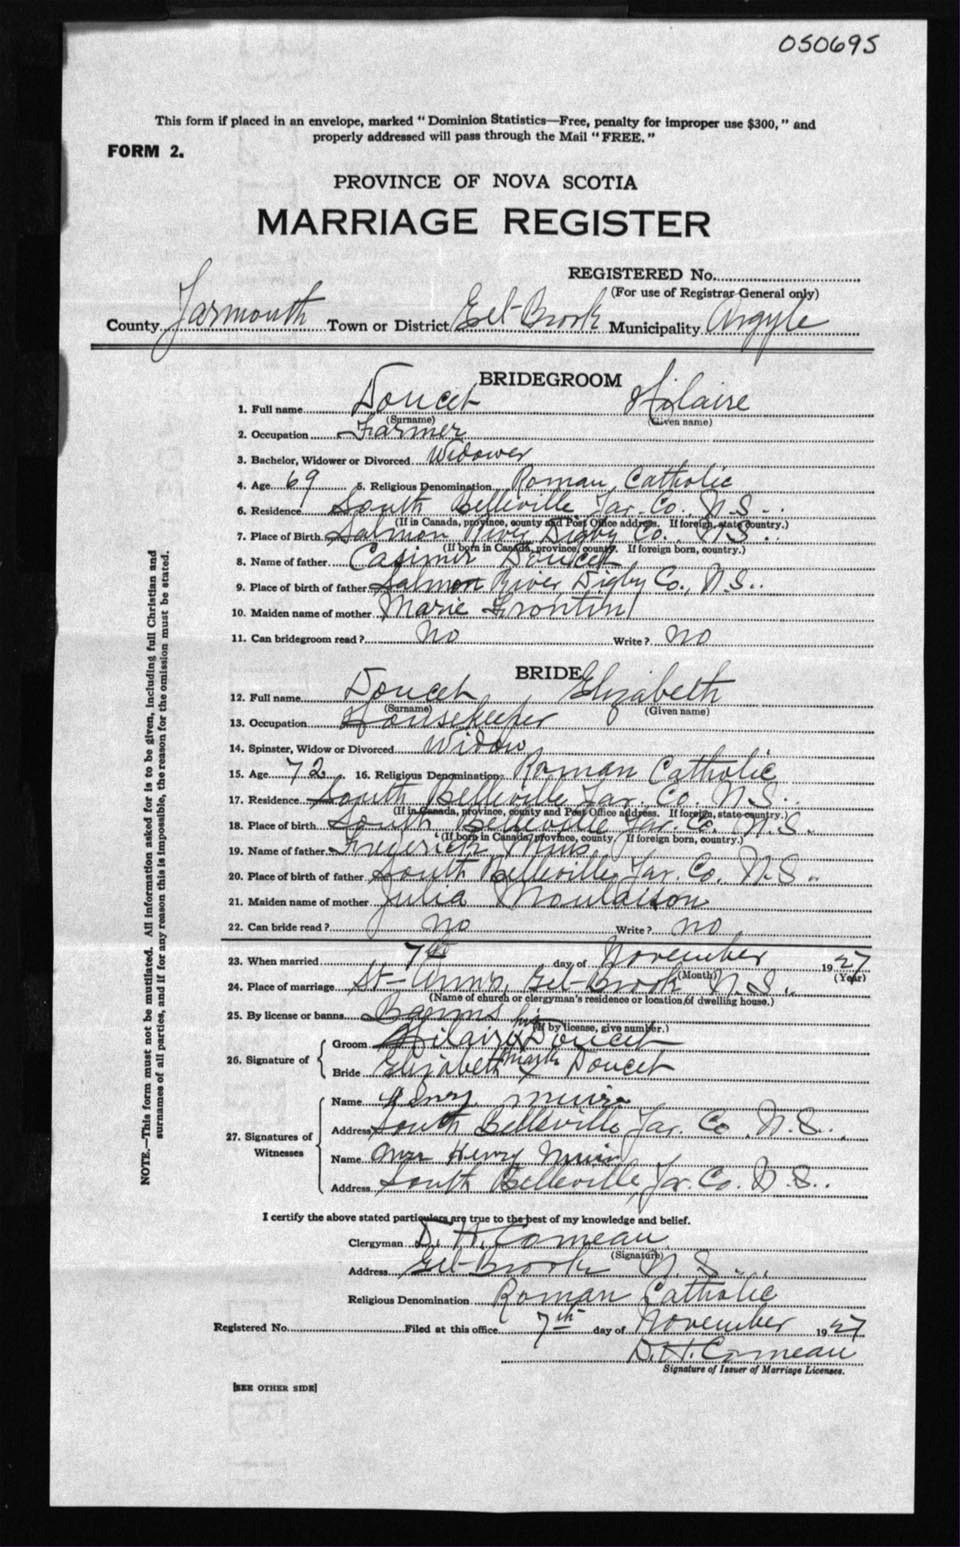 050695
This form if placed in an envelope, marked "Dominion Statistics—Free, penalty for improper use $300," and
properly addressed will pass through the Mail "FREE."
FORM 2.
PROVINCE OF NOVA SCOTIA
MARRIAGE REGISTER
REGISTERED No.
(For use of Registrar General only)
County Yarmouth Town or District Eel-Brook Municipality Argyle
BRIDEGROOM
1. Full name Doucet Hilaire
(Surname) (Given name)
2. Occupation Farmer
3. Bachelor, Widower or Divorced Widower
4. Age 69 5. Religious Denomination Roman Catholic
6. Residence South Belleville Yar. Co. N.S.
(If in Canada, province, county and Post Office address. If foreign, state country.)
7. Place of Birth Salmon River Digby Co., N.S.
(If born in Canada, province, county. If foreign born, country.)
8. Name of father Casimir Doucet
9. Place of birth of father Salmon River, Digby Co., N.S.
10. Maiden name of mother Marie Frontin
11. Can bridegroom read? No Write? No
BRIDE
12. Full name Doucet Elizabeth
(Surname) (Given name)
13. Occupation Housekeeper
14. Spinster, Widow or Divorced Widow
15. Age 72 16. Religious Denomination Roman Catholic
17. Residence South Belleville Yar. Co. N.S.
(If in Canada, province, county and Post Office address. If foreign, state country.)
18. Place of birth South Belleville Yar. Co. N.S.
(If born in Canada, province, county. If foreign born, country.)
19. Name of father Frederick Mius
20. Place of birth of father South Belleville, Yar. Co. N.S.
21. Maiden name of mother Julia Moulaison
22. Can bride read? No Write? No
23. When married 7th day of November 1927
(Month) (Year)
24. Place of marriage St-Ann's, Eel-Brook, N.S.
(Name of church or clergyman's residence or location of dwelling house.)
25. By license or banns Banns
(If by license, give number.)
26. Signature of
Groom Hilaire his X mark Doucet
Bride Elizabeth X Doucet
27. Signatures of Witnesses
Name Henry
Address South Belleville, Yar. Co. N.S.
Name Mrs Henry
Address South Belleville, Yar. Co. N.S.
I certify the above stated particulars are true to the best of my knowledge and belief.
Clergyman D. H. Comeau
(Signature)
Address Eel-Brook N.S.
Religious Denomination Roman Catholic
Registered No. Filed at this office 7th day of November 1927
D.H. Comeau
Signature of Issuer of Marriage Licenses.
[SEE OTHER SIDE]
NOTE.—This form must not be mutilated. All information asked for is to be given, including full Christian and
surnames of all parties, and if for any reason this is impossible, the reason for the omission must be stated.